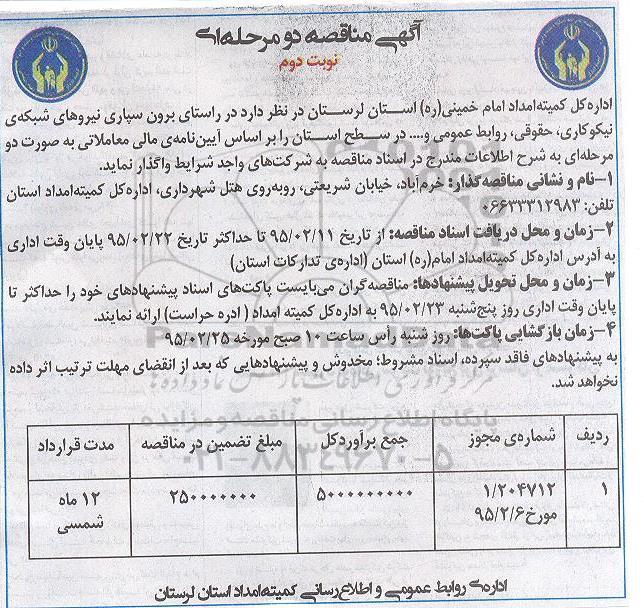 آگهی مناقصه دو مرحله‌ای
نوبت دوم
اداره‌کل کمیته‌امداد امام خمینی(ره) استان لرستان در نظر دارد در راستای برون سپاری نیروهای شبکه‌ی
نیکوکاری، حقوقی، روابط عمومی و.... در سطح استان را بر اساس آیین‌نامه‌ی مالی معاملاتی به صورت دو
مرحله‌ای به شرح اطلاعات مندرج در اسناد مناقصه به شرکت‌های واجد شرایط واگذار نماید.
۱-نام و نشانی مناقصه‌گذار: خرم‌آباد، خیابان شریعتی، روبه‌روی هتل شهرداری، اداره‌کل کمیته‌امداد استان
تلفن: ۰۶۶۳۳۳۱۲۹۸۳
۲-زمان و محل دریافت اسناد مناقصه: از تاریخ ۹۵/۰۲/۱۱ تا حداکثر تاریخ ۹۵/۰۲/۲۲ پایان وقت اداری
به آدرس اداره‌کل کمیته‌امداد امام(ره) استان (اداره‌ی تدارکات استان)
۳-زمان و محل تحویل پیشنهادها: مناقصه‌گران می‌بایست پاکت‌های اسناد پیشنهادهای خود را حداکثر تا
پایان وقت اداری روز پنج‌شنبه ۹۵/۰۲/۲۳ به اداره‌کل کمیته امداد ( ادره حراست) ارائه نمایند.
۴-زمان بازگشایی پاکت‌ها: روز شنبه رأس ساعت ۱۰ صبح مورخه ۹۵/۰۲/۲۵
به پیشنهادهای فاقد سپرده، اسناد مشروط؛ مخدوش و پیشنهادهایی که بعد از انقضای مهلت ترتیب اثر داده
نخواهد شد.
ردیف شماره‌ی مجوز جمع برآوردکل مبلغ تضمین در مناقصه مدت قرارداد
۱ ۱/۲۰۴۷۱۲ ۵۰۰۰۰۰۰۰۰۰ ۲۵۰۰۰۰۰۰۰ ۱۲ ماه
مورخ۹۵/۲/۶ شمسی
اداره‌ی روابط عمومی و اطلاع‌رسانی کمیته‌امداد استان لرستان
پایگاه اطلاع رسانی مناقصه و مزایده
۰۲۱-۸۸۳۴۹۶۷۰-۵